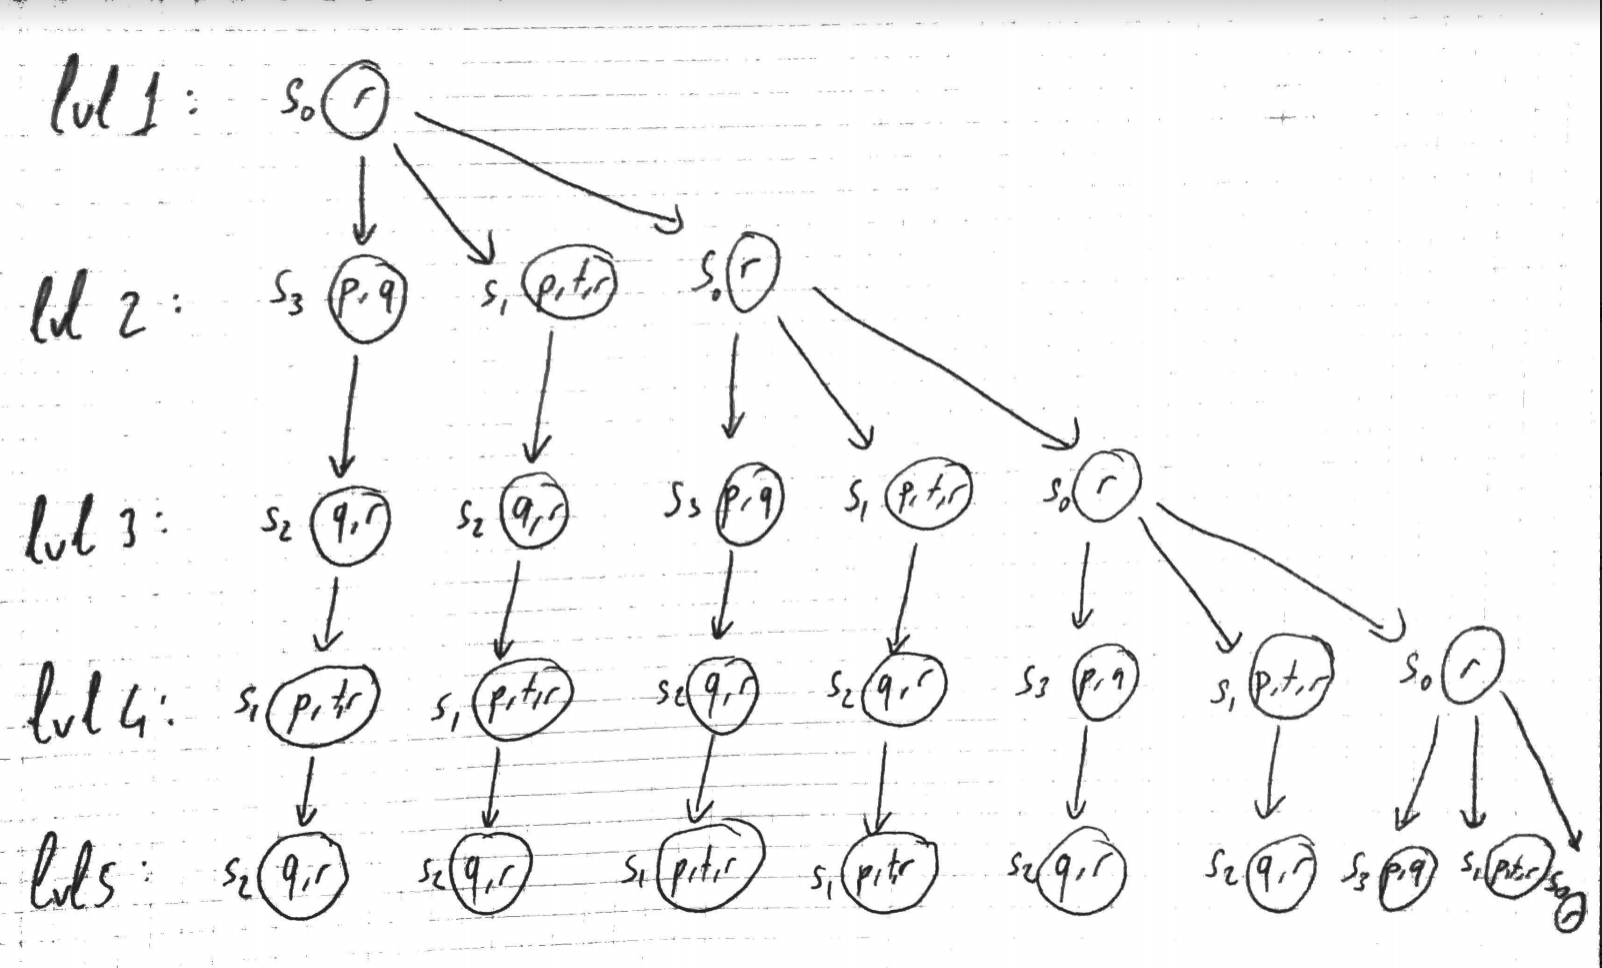 lvl 1: S₀ r
lvl 2: S₃ p,q S₁ p,t,r S₀ r
lvl 3: S₂ q,r S₂ q,r S₃ p,q S₁ p,t,r S₀ r
lvl 4: S₁ p,t,r S₁ p,t,r S₂ q,r S₂ q,r S₃ p,q S₁ p,t,r S₀ r
lvl 5: S₂ q,r S₂ q,r S₁ p,t,r S₁ p,t,r S₂ q,r S₂ q,r S₃ p,q S₁ p,t,r S₀ r